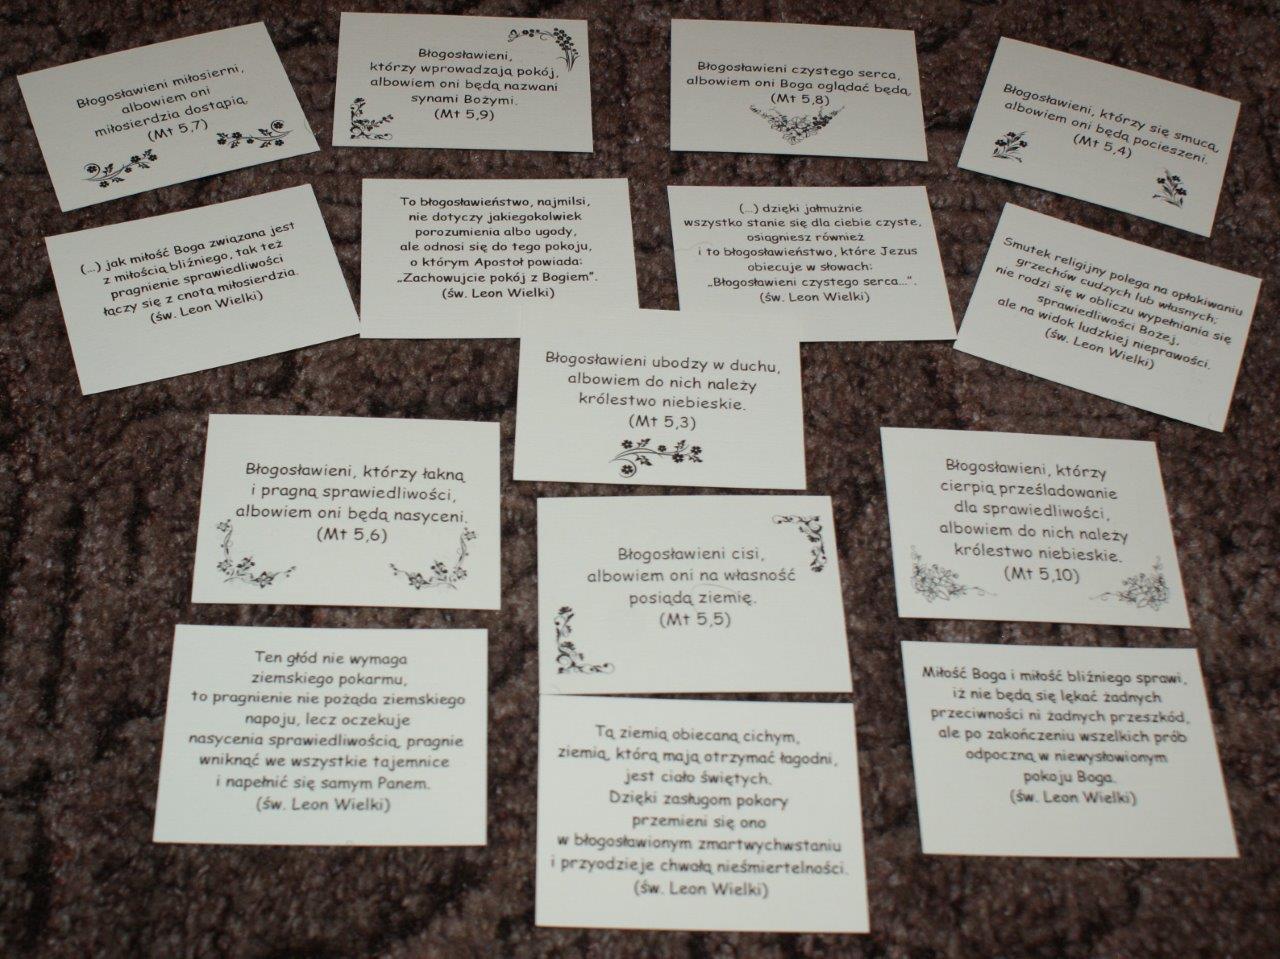 Błogosławieni miłosierni,
albowiem oni
miłosierdzia dostąpią.
(Mt 5,7)
Błogosławieni,
którzy wprowadzają pokój,
albowiem oni będą nazwani
synami Bożymi.
(Mt 5,9)
Błogosławieni czystego serca,
albowiem oni Boga oglądać będą.
(Mt 5,8)
Błogosławieni, którzy się smucą,
albowiem oni będą pocieszeni.
(Mt 5,4)
(...) jak miłość Boga związana jest
z miłością bliźniego, tak też
pragnienie sprawiedliwości
łączy się z cnotą miłosierdzia.
(św. Leon Wielki)
To błogosławieństwo, najmilsi,
nie dotyczy jakiegokolwiek
porozumienia albo ugody,
ale odnosi się do tego pokoju,
o którym Apostoł powiada:
„Zachowujcie pokój z Bogiem”.
(św. Leon Wielki)
(...) dzięki jałmużnie
wszystko stanie się dla ciebie czyste,
osiągniesz również
i to błogosławieństwo, które Jezus
obiecuje w słowach:
„Błogosławieni czystego serca...”.
(św. Leon Wielki)
Smutek religijny polega na opłakiwaniu
grzechów cudzych lub własnych;
nie rodzi się w obliczu wypełniania się
sprawiedliwości Bożej,
ale na widok ludzkiej nieprawości.
(św. Leon Wielki)
Błogosławieni ubodzy w duchu,
albowiem do nich należy
królestwo niebieskie.
(Mt 5,3)
Błogosławieni, którzy łakną
i pragną sprawiedliwości,
albowiem oni będą nasyceni.
(Mt 5,6)
Błogosławieni cisi,
albowiem oni na własność
posiądą ziemię.
(Mt 5,5)
Błogosławieni, którzy
cierpią prześladowanie
dla sprawiedliwości,
albowiem do nich należy
królestwo niebieskie.
(Mt 5,10)
Ten głód nie wymaga
ziemskiego pokarmu,
to pragnienie nie pożąda ziemskiego
napoju, lecz oczekuje
nasycenia sprawiedliwością, pragnie
wniknąć we wszystkie tajemnice
i napełnić się samym Panem.
(św. Leon Wielki)
Tą ziemią obiecaną cichym,
ziemią, którą mają otrzymać łagodni,
jest ciało świętych.
Dzięki zasługom pokory
przemieni się ono
w błogosławionym zmartwychwstaniu
i przyodzieje chwałą nieśmiertelności.
(św. Leon Wielki)
Miłość Boga i miłość bliźniego sprawi,
iż nie będą się lękać żadnych
przeciwności ni żadnych przeszkód,
ale po zakończeniu wszelkich prób
odpoczną w niewysłowionym
pokoju Boga.
(św. Leon Wielki)